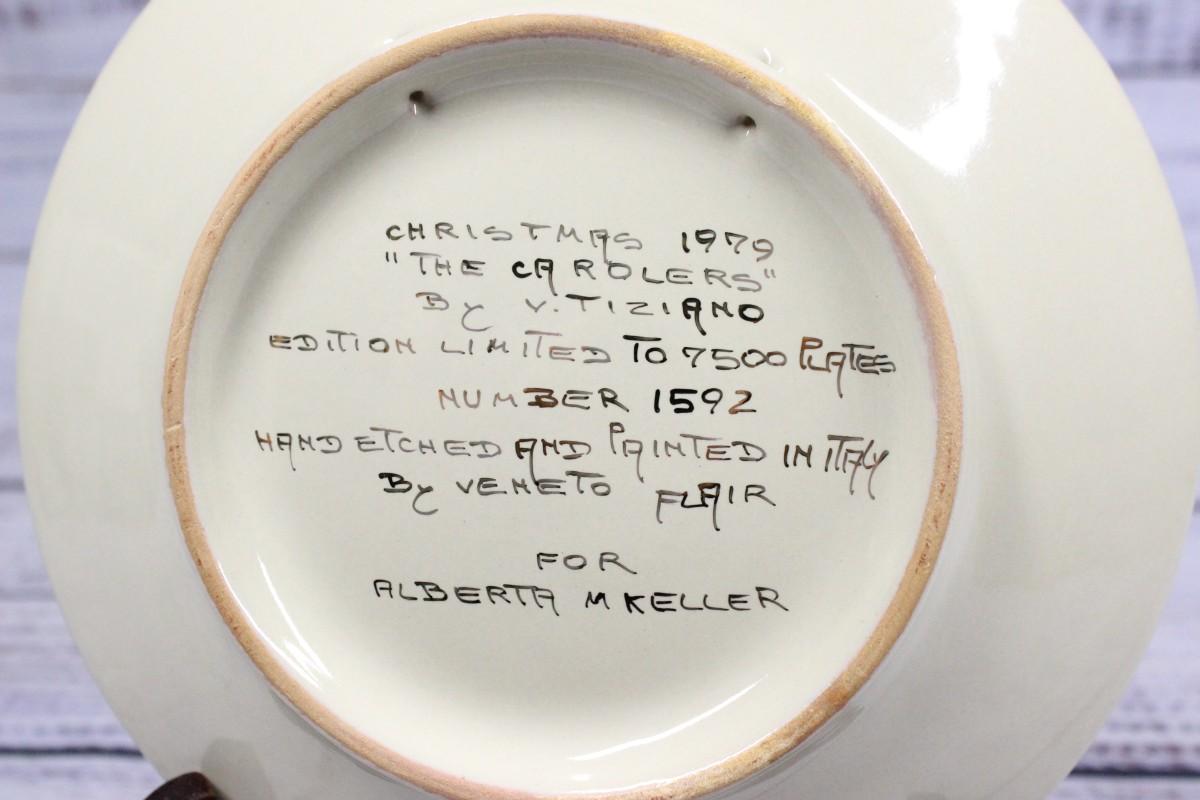 CHRISTMAS 1979
"THE CAROLERS"
By V. TIZIANO
EDITION LIMITED TO 7500 PLATES
NUMBER 1592
HAND ETCHED AND PAINTED IN ITALY
By VENETO FLAIR
FOR
ALBERTA M KELLER